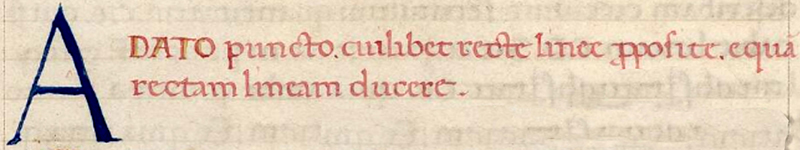 A DATO puncto. cuilibet recte linee ꝓposite. equã
rectam lineam ducere.